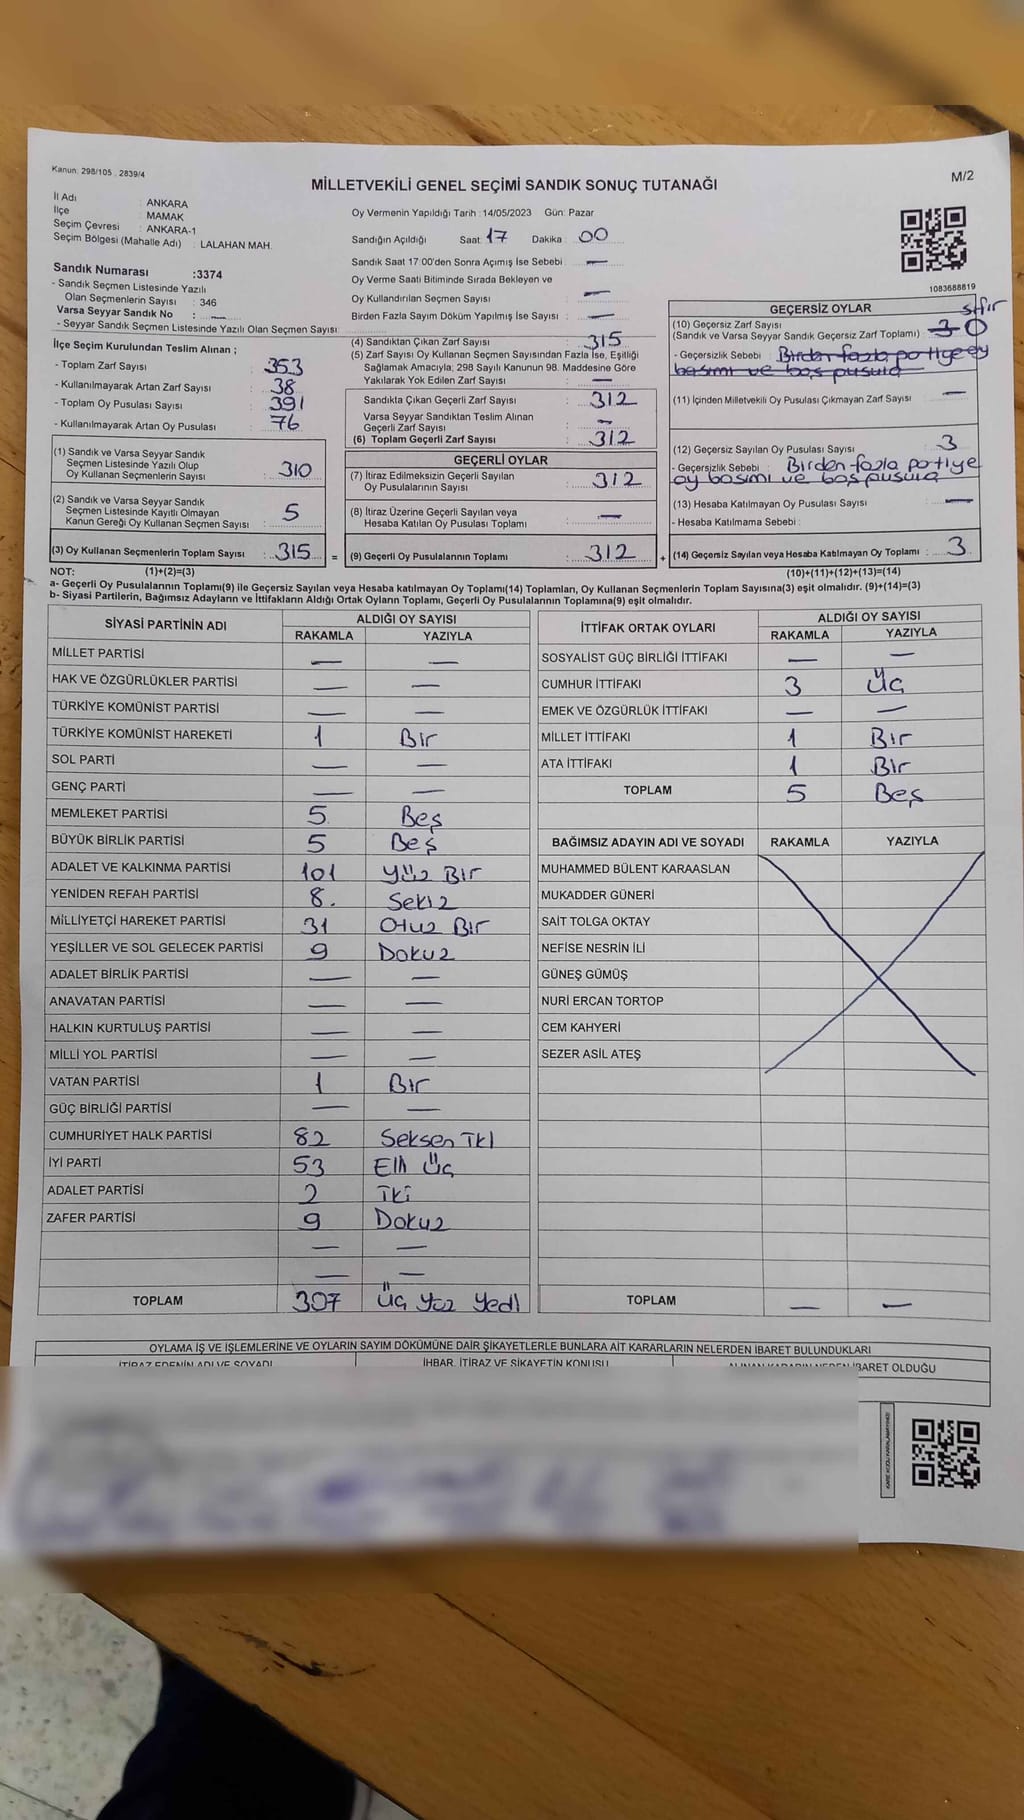 Kanun. 298/105 . 2839/4
MİLLETVEKİLİ GENEL SEÇİMİ SANDIK SONUÇ TUTANAĞI
M/2
İl Adı : ANKARA
İlçe : MAMAK
Seçim Çevresi : ANKARA-1
Seçim Bölgesi (Mahalle Adı) : LALAHAN MAH.
Sandık Numarası :3374
- Sandık Seçmen Listesinde Yazılı
Olan Seçmenlerin Sayısı : 346
Varsa Seyyar Sandık No : —
- Seyyar Sandık Seçmen Listesinde Yazılı Olan Seçmen Sayısı:
İlçe Seçim Kurulundan Teslim Alınan ;
- Toplam Zarf Sayısı : 353
- Kullanılmayarak Artan Zarf Sayısı : 38
- Toplam Oy Pusulası Sayısı : 391
- Kullanılmayarak Artan Oy Pusulası : 76
(1) Sandık ve Varsa Seyyar Sandık
Seçmen Listesinde Yazılı Olup
Oy Kullanan Seçmenlerin Sayısı : 310
(2) Sandık ve Varsa Seyyar Sandık
Seçmen Listesinde Kayıtlı Olmayan
Kanun Gereği Oy Kullanan Seçmen Sayısı : 5
(3) Oy Kullanan Seçmenlerin Toplam Sayısı : 315 =
Oy Vermenin Yapıldığı Tarih : 14/05/2023 Gün: Pazar
Sandığın Açıldığı Saat: 17 Dakika : 00
Sandık Saat 17.00'den Sonra Açımış İse Sebebi : —
Oy Verme Saati Bitiminde Sırada Bekleyen ve
Oy Kullandırılan Seçmen Sayısı : —
Birden Fazla Sayım Döküm Yapılmış İse Sayısı : —
(4) Sandıktan Çıkan Zarf Sayısı : 315
(5) Zarf Sayısı Oy Kullanan Seçmen Sayısından Fazla İse, Eşitliği
Sağlamak Amacıyla, 298 Sayılı Kanunun 98. Maddesine Göre
Yakılarak Yok Edilen Zarf Sayısı : —
Sandıkta Çıkan Geçerli Zarf Sayısı : 312
Varsa Seyyar Sandıktan Teslim Alınan
Geçerli Zarf Sayısı : —
(6) Toplam Geçerli Zarf Sayısı : 312
GEÇERLİ OYLAR
(7) İtiraz Edilmeksizin Geçerli Sayılan
Oy Pusulalarının Sayısı : 312
(8) İtiraz Üzerine Geçerli Sayılan veya
Hesaba Katılan Oy Pusulası Toplamı : —
(9) Geçerli Oy Pusulalarının Toplamı : 312 +
1083688819
GEÇERSİZ OYLAR
sıfır
(10) Geçersiz Zarf Sayısı
(Sandık ve Varsa Seyyar Sandık Geçersiz Zarf Toplamı) : 3 0
- Geçersizlik Sebebi : Birden fazla partiye oy
basımı ve boş pusula
(11) İçinden Milletvekili Oy Pusulası Çıkmayan Zarf Sayısı : —
(12) Geçersiz Sayılan Oy Pusulası Sayısı : 3
- Geçersizlik Sebebi : Birden fazla partiye
oy basımı ve boş pusula
(13) Hesaba Katılmayan Oy Pusulası Sayısı : —
- Hesaba Katılmama Sebebi :
(14) Geçersiz Sayılan veya Hesaba Katılmayan Oy Toplamı : 3
NOT: (1)+(2)=(3)
(10)+(11)+(12)+(13)=(14)
a- Geçerli Oy Pusulalarının Toplamı(9) ile Geçersiz Sayılan veya Hesaba katılmayan Oy Toplamı(14) Toplamları, Oy Kullanan Seçmenlerin Toplam Sayısına(3) eşit olmalıdır. (9)+(14)=(3)
b- Siyasi Partilerin, Bağımsız Adayların ve İttifakların Aldığı Ortak Oyların Toplamı, Geçerli Oy Pusulalarının Toplamına(9) eşit olmalıdır.
SİYASİ PARTİNİN ADI ALDIĞI OY SAYISI
RAKAMLA YAZIYLA
MİLLET PARTİSİ — —
HAK VE ÖZGÜRLÜKLER PARTİSİ — —
TÜRKİYE KOMÜNİST PARTİSİ — —
TÜRKİYE KOMÜNİST HAREKETİ 1 Bir
SOL PARTİ — —
GENÇ PARTİ — —
MEMLEKET PARTİSİ 5 Beş
BÜYÜK BİRLİK PARTİSİ 5 Beş
ADALET VE KALKINMA PARTİSİ 101 Yüz Bir
YENİDEN REFAH PARTİSİ 8. Sekiz
MİLLİYETÇİ HAREKET PARTİSİ 31 Otuz Bir
YEŞİLLER VE SOL GELECEK PARTİSİ 9 Dokuz
ADALET BİRLİK PARTİSİ — —
ANAVATAN PARTİSİ — —
HALKIN KURTULUŞ PARTİSİ — —
MİLLİ YOL PARTİSİ — —
VATAN PARTİSİ 1 Bir
GÜÇ BİRLİĞİ PARTİSİ — —
CUMHURİYET HALK PARTİSİ 82 Seksen İki
İYİ PARTİ 53 Elli Üç
ADALET PARTİSİ 2 İki
ZAFER PARTİSİ 9 Dokuz
— —
— —
TOPLAM 307 Üç Yüz Yedi
İTTİFAK ORTAK OYLARI ALDIĞI OY SAYISI
RAKAMLA YAZIYLA
SOSYALİST GÜÇ BİRLİĞİ İTTİFAKI — —
CUMHUR İTTİFAKI 3 Üç
EMEK VE ÖZGÜRLÜK İTTİFAKI — —
MİLLET İTTİFAKI 1 Bir
ATA İTTİFAKI 1 Bir
TOPLAM 5 Beş
BAĞIMSIZ ADAYIN ADI VE SOYADI RAKAMLA YAZIYLA
MUHAMMED BÜLENT KARAASLAN
MUKADDER GÜNERİ
SAİT TOLGA OKTAY
NEFİSE NESRİN İLİ
GÜNEŞ GÜMÜŞ
NURİ ERCAN TORTOP
CEM KAHYERİ
SEZER ASİL ATEŞ
TOPLAM — —
OYLAMA İŞ VE İŞLEMLERİNE VE OYLARIN SAYIM DÖKÜMÜNE DAİR ŞİKAYETLERLE BUNLARA AİT KARARLARIN NELERDEN İBARET BULUNDUKLARI
İTİRAZ EDENİN ADI VE SOYADI İHBAR, İTİRAZ VE ŞİKAYETİN KONUSU ALINAN KARARIN NEDEN İBARET OLDUĞU